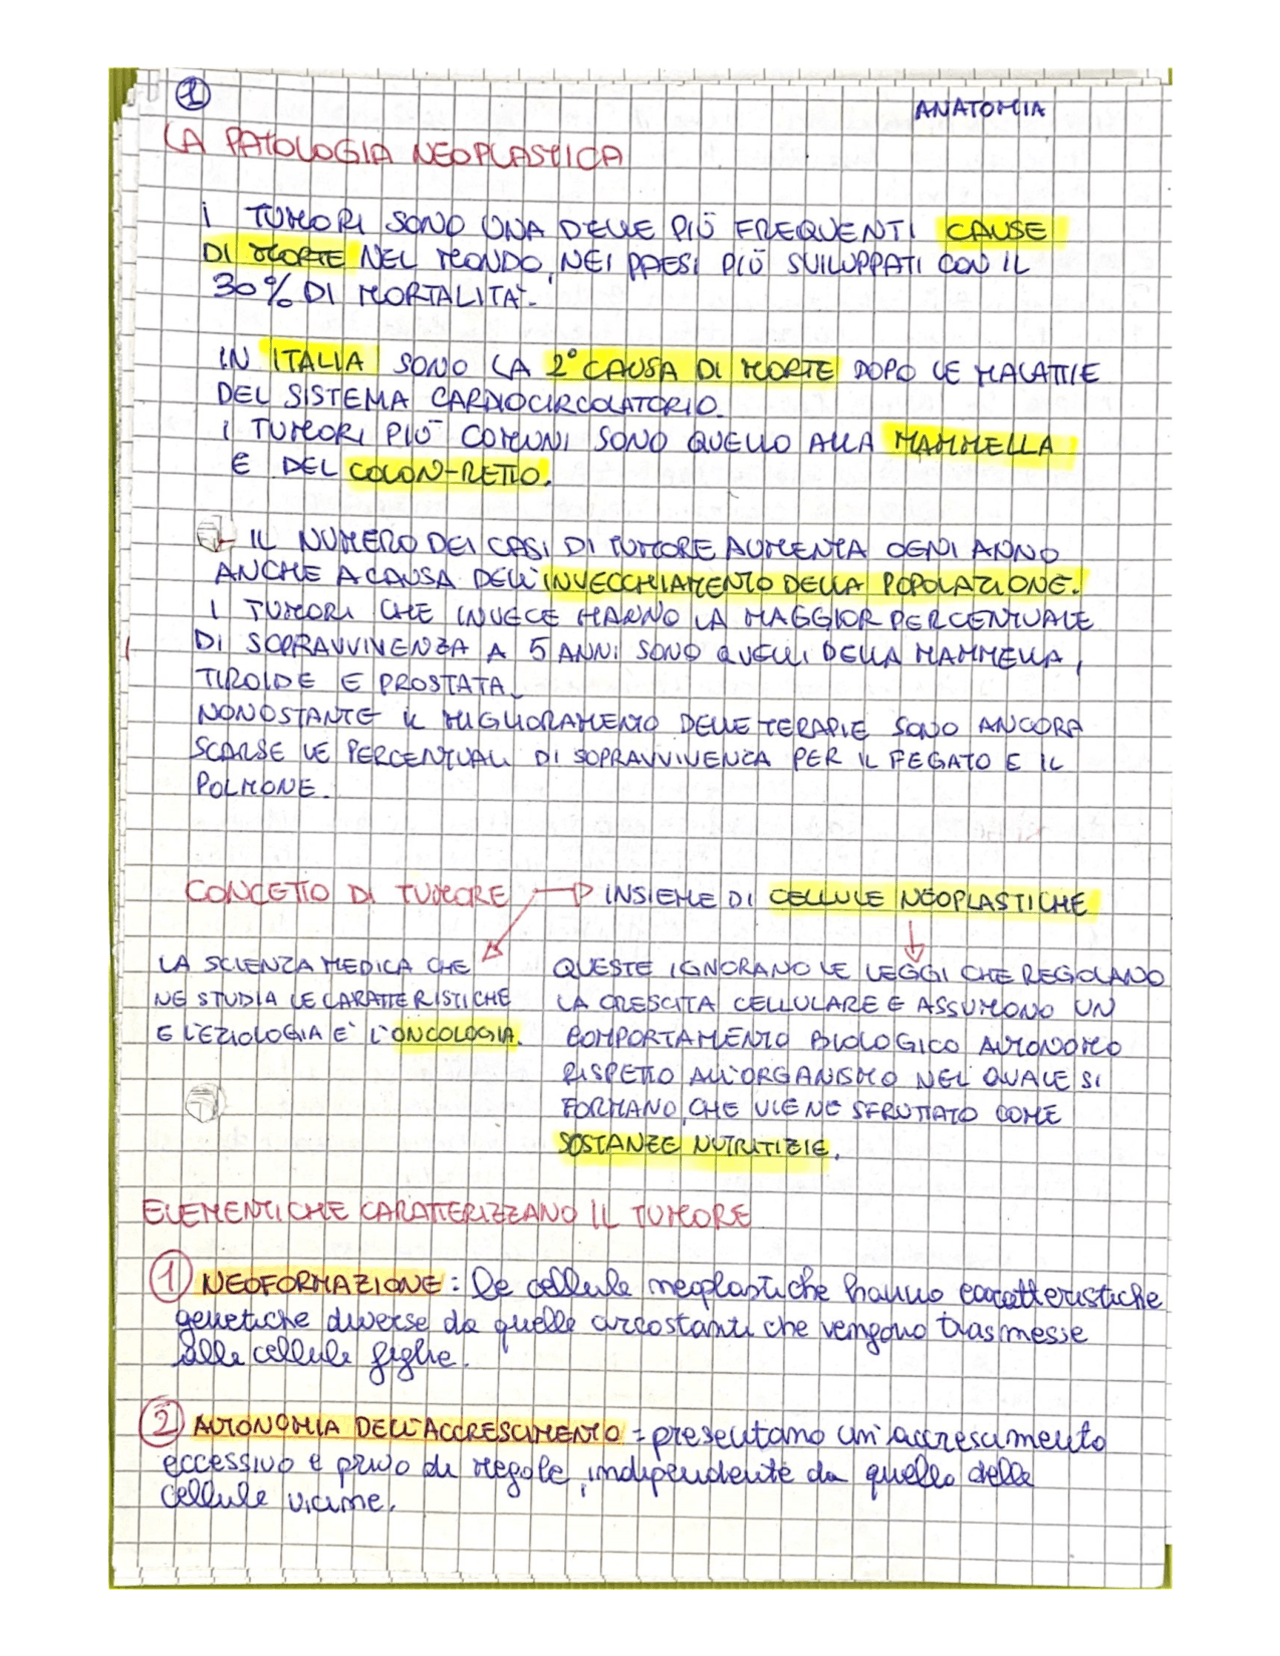 1
ANATOMIA
LA PATOLOGIA NEOPLASTICA
I TUMORI SONO UNA DELLE PIÙ FREQUENTI CAUSE
DI MORTE NEL MONDO, NEI PAESI PIÙ SVILUPPATI CON IL
30% DI MORTALITA'.
IN ITALIA SONO LA 2° CAUSA DI MORTE DOPO LE MALATTIE
DEL SISTEMA CARDIOCIRCOLATORIO.
I TUMORI PIÙ COMUNI SONO QUELLO ALLA MAMMELLA
E DEL COLON-RETTO.
IL NUMERO DEI CASI DI TUMORE AUMENTA OGNI ANNO
ANCHE A CAUSA DELL'INVECCHIAMENTO DELLA POPOLAZIONE.
I TUMORI CHE INVECE HANNO LA MAGGIOR PERCENTUALE
DI SOPRAVVIVENZA A 5 ANNI SONO QUELLI DELLA MAMMELLA,
TIROIDE E PROSTATA.
NONOSTANTE IL MIGLIORAMENTO DELLE TERAPIE SONO ANCORA
SCARSE LE PERCENTUALI DI SOPRAVVIVENZA PER IL FEGATO E IL
POLMONE.
CONCETTO DI TUMORE → INSIEME DI CELLULE NEOPLASTICHE
LA SCIENZA MEDICA CHE
NE STUDIA LE CARATTERISTICHE
E L'EZIOLOGIA E' L'ONCOLOGIA.
QUESTE IGNORANO LE LEGGI CHE REGOLANO
LA CRESCITA CELLULARE E ASSUMONO UN
COMPORTAMENTO BIOLOGICO AUTONOMO
RISPETTO ALL'ORGANISMO NEL QUALE SI
FORMANO, CHE VIENE SFRUTTATO COME
SOSTANZE NUTRITIZIE.
ELEMENTI CHE CARATTERIZZANO IL TUMORE
1) NEOFORMAZIONE: Le cellule neoplastiche hanno caratteristiche
genetiche diverse da quelle circostanti che vengono trasmesse
alle cellule figlie.
2) AUTONOMIA DELL'ACCRESCIMENTO = presentano un'accrescimento
eccessivo e privo di regole, indipendente da quello delle
cellule vicine.